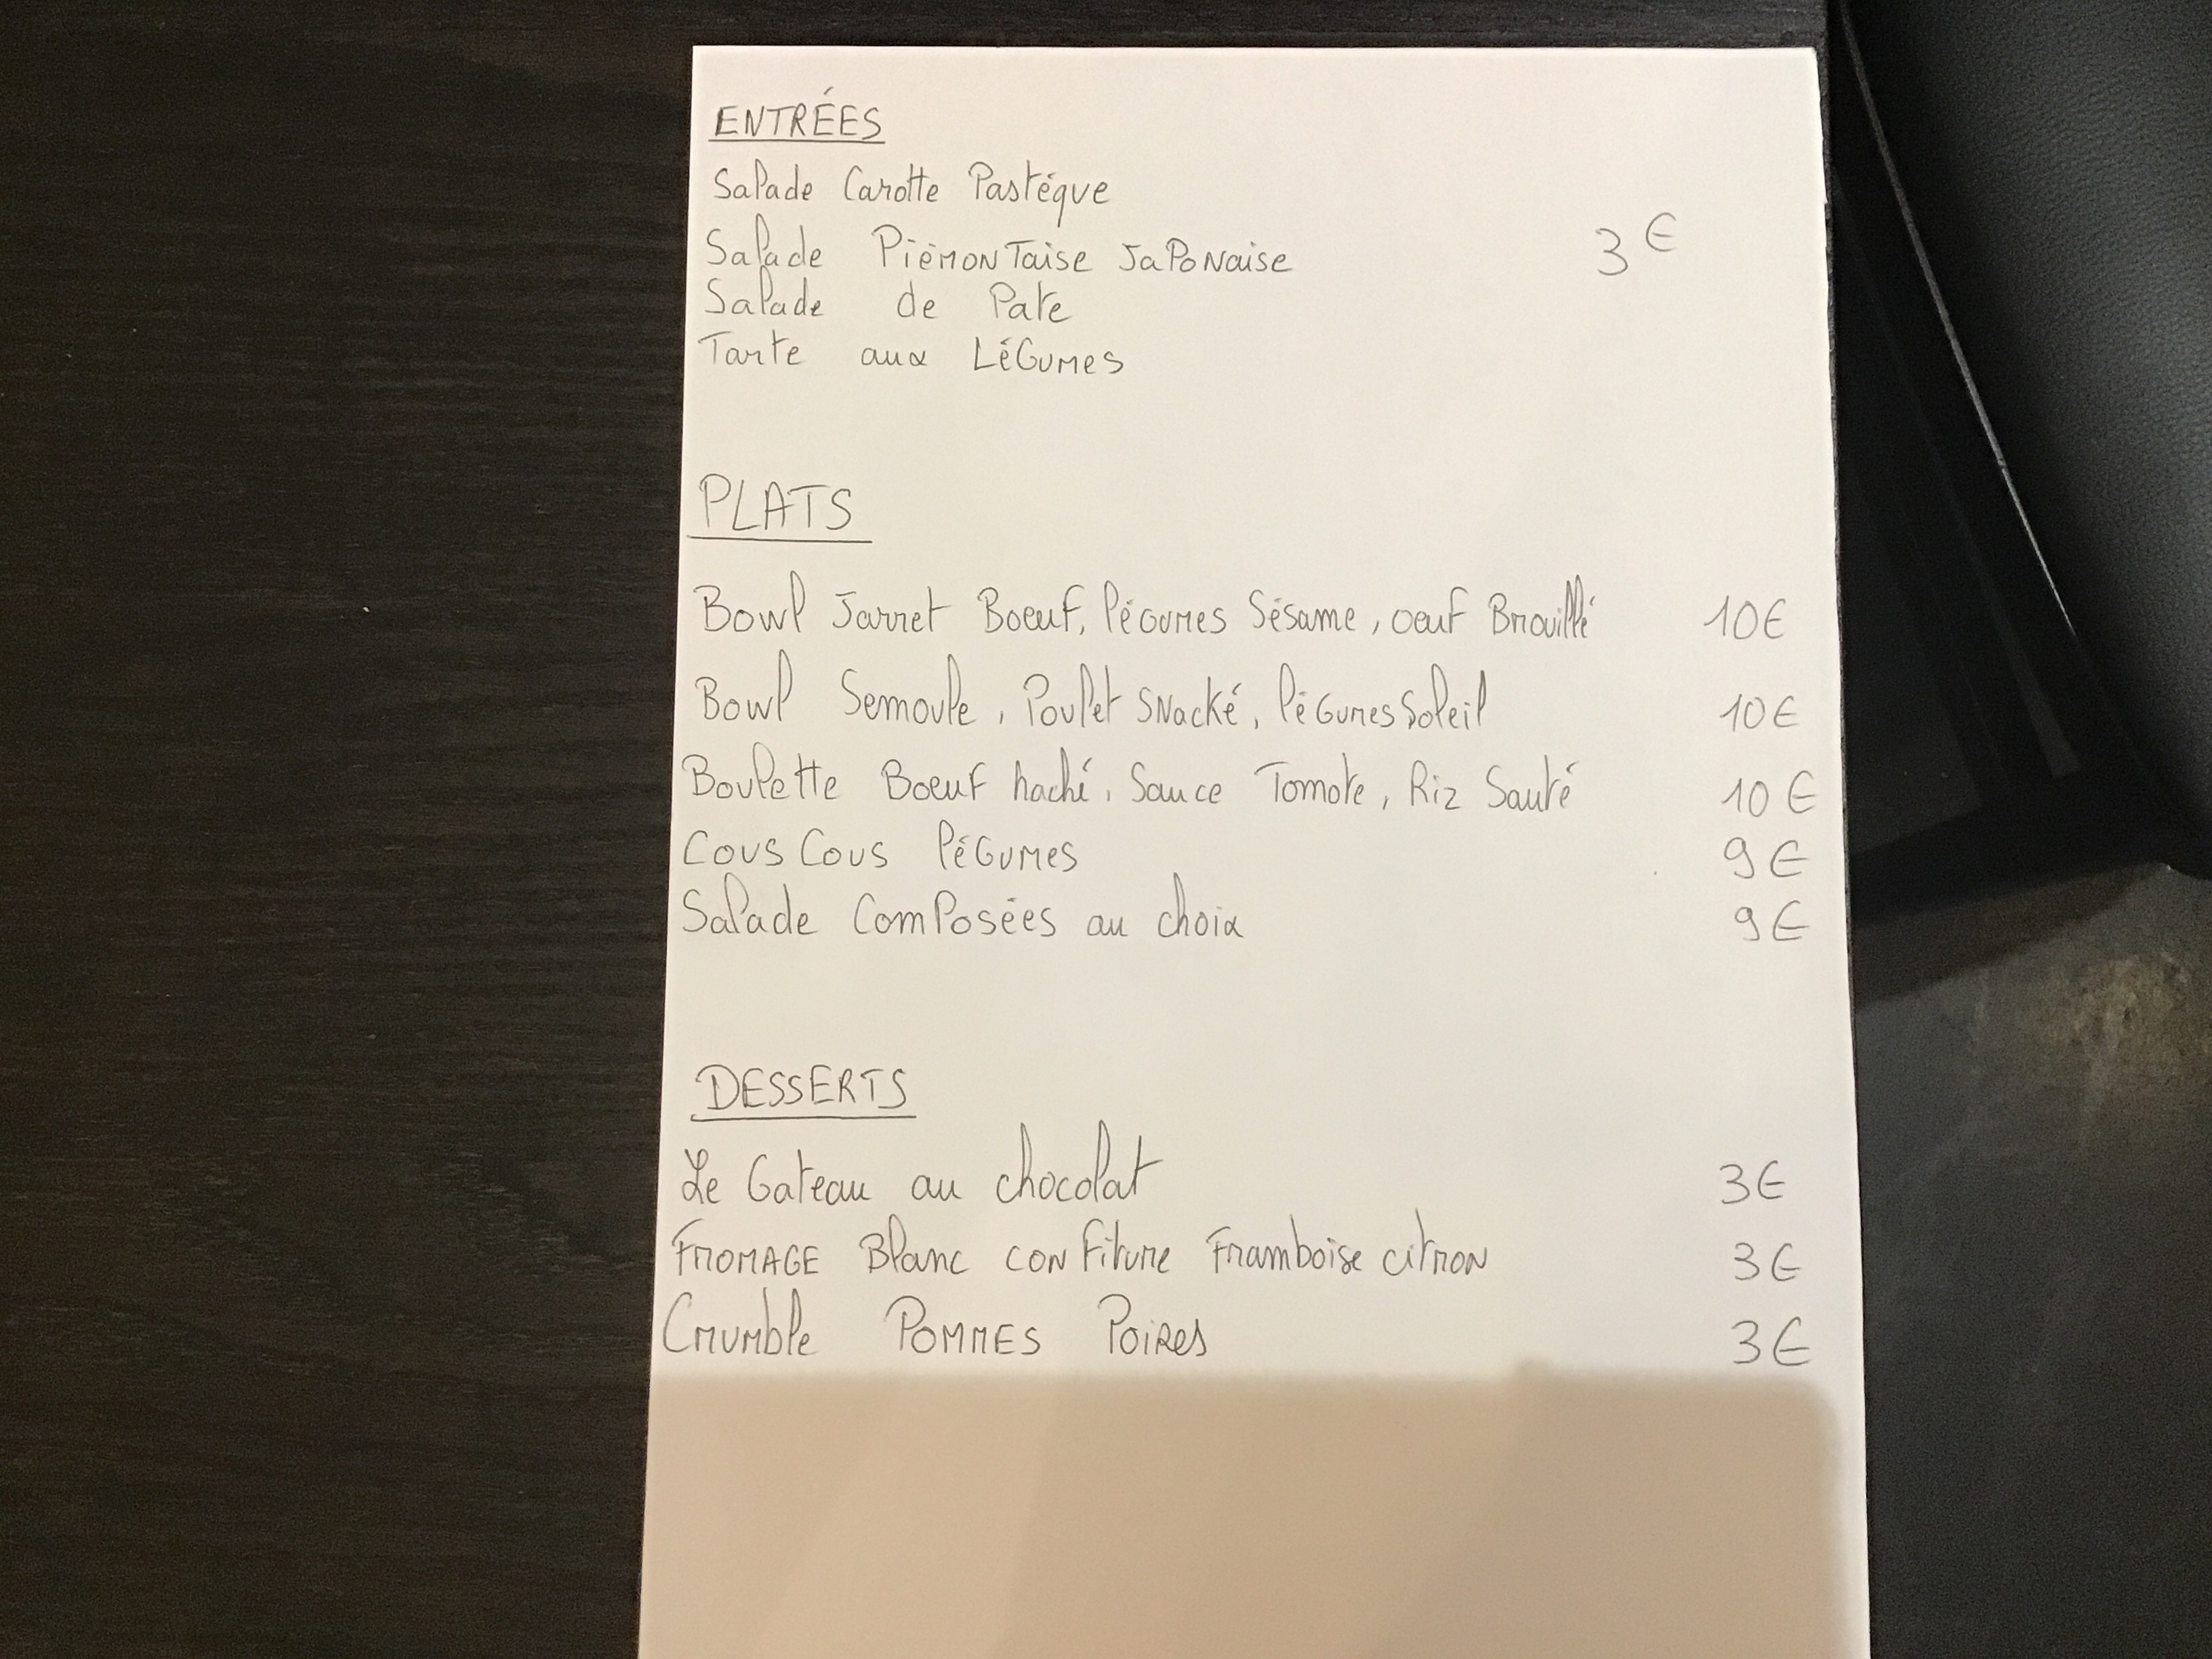 ENTRÉES
Salade Carotte Pastéque
Salade Piémontaise Japonaise 3€
Salade de Pate
Tarte aux Légumes
PLATS
Bowl Jarret Boeuf, légumes Sésame, oeuf Brouillé 10€
Bowl Semoule, Poulet Snacké, légumes Soleil 10€
Boulette Boeuf haché, Sauce Tomate, Riz Sauté 10€
Cous Cous légumes 9€
Salade Composées au choix 9€
DESSERTS
Le Gateau au chocolat 3€
Fromage Blanc confiture Framboise citron 3€
Crumble Pommes Poires 3€